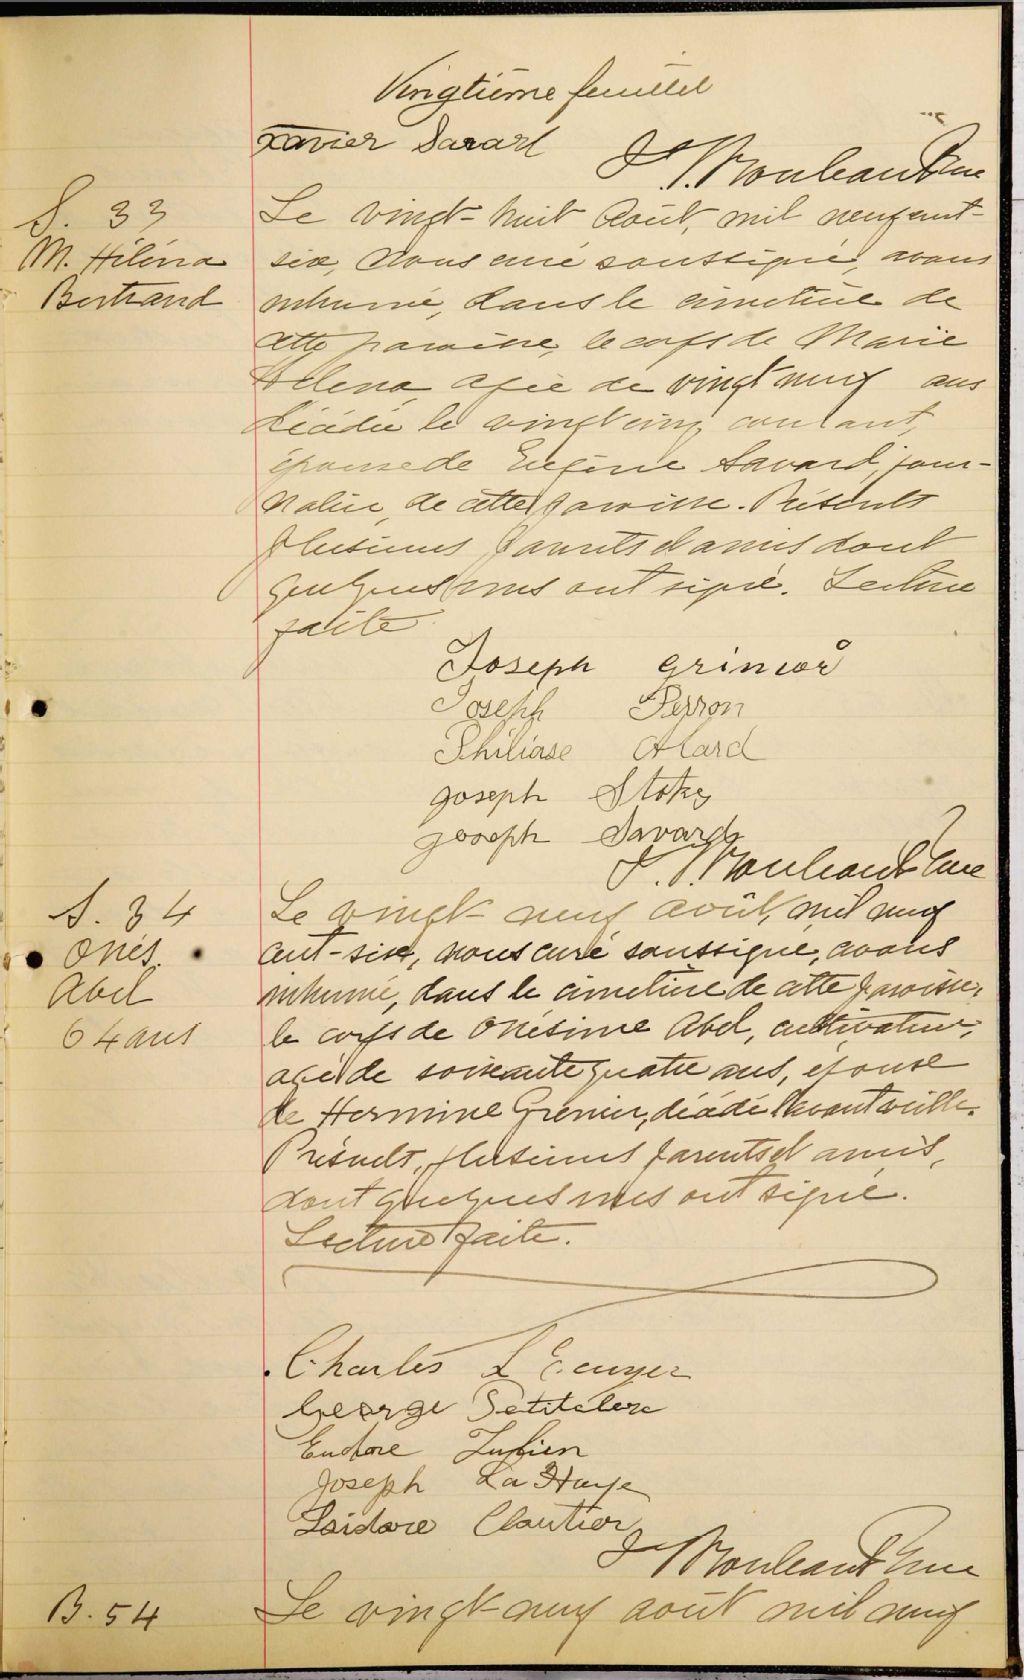 Vingtième feuillet
Xavier Savard
J. Rouleau Ptre
S. 33
M. Héléna
Bertrand
Le vingt-huit Août, mil neuf cent-
six, Nous curé soussigné, avons
inhumé, dans le cimetière de
cette paroisse, le corps de Marie
Helena agée de vingt neuf ans
décédée le vingt cinq courant,
épouse de Eugène Savard, jour-
nalier, de cette paroisse. Présents
plusieurs parents et amis dont
quelques uns ont signé. Lecture
faite
Joseph
Joseph Perron
Philiase Alard
Joseph Stoky
Joseph Savard
J. Rouleau Ptre
S. 34
Onés.
Abel
64 ans
Le vingt-neuf août, mil neuf
cent-six, nous curé soussigné, avons
inhumé, dans le cimetière de cette paroisse,
le corps de Onésime Abel, cultivateur,
agé de soixante quatre ans, époux
de Hermine Grenier, décédé l'avant veille.
Présents, plusieurs parents et amis,
dont quelques uns ont signé.
Lecture faite.
Charles L Ecuyer
George Petitclerc
Eudore Julien
Joseph La Haye
Isidore Cloutier
J Rouleau Ptre
B. 54
Le vingt-neuf août mil neuf